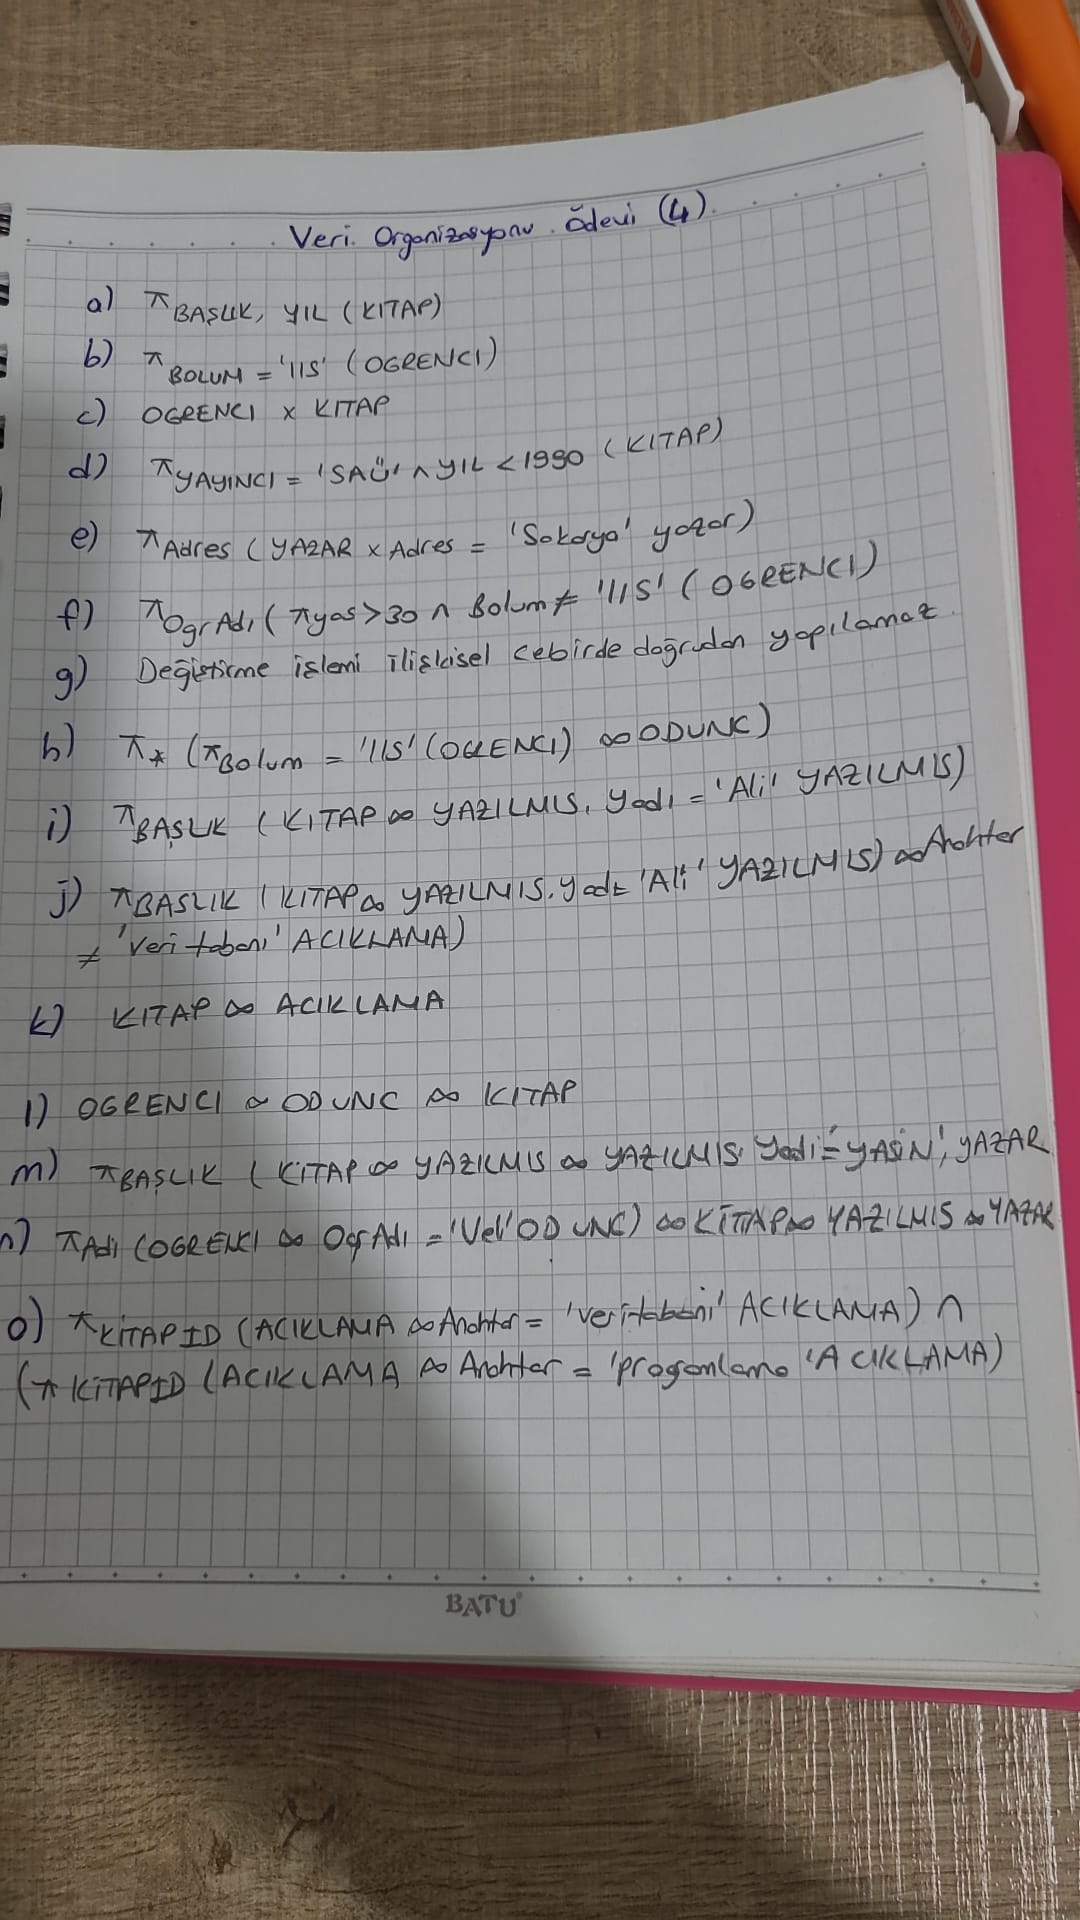 Veri Organizasyonu Ödevi (4)
a) π BAŞLIK, YIL (KITAP)
b) π BOLUM = 'IIS' (OGRENCI)
c) OGRENCI x KITAP
d) π YAYINCI = 'SAÜ' ∧ YIL < 1990 (KITAP)
e) π Adres (YAZAR x Adres = 'Sakarya' yazar)
f) π OgrAdı (π yas > 30 ∧ Bolum ≠ 'IIS' (OGRENCI)
g) Değiştirme işlemi ilişkisel cebirde doğrudan yapılamaz.
h) π * (π Bolum = 'IIS' (OGRENCI) ∞ ODUNC)
i) π BAŞLIK (KITAP ∞ YAZILMIS. Yadı = 'Ali' YAZILMIS)
j) π BASLIK (KITAP ∞ YAZILMIS. yadı = 'Ali' YAZILMIS) ∞ Anahtar
≠ 'Veri tabanı' ACIKLAMA)
k) KITAP ∞ ACIKLAMA
l) OGRENCI ∞ ODUNC ∞ KITAP
m) π BAŞLIK (KİTAP ∞ YAZILMIS ∞ YAZILMIS. Yadı = 'YASİN', YAZAR
n) π Adı (OGRENCI ∞ OgrAdı = 'Veli' ODUNC) ∞ KİTAP ∞ YAZILMIS ∞ YAZAR
o) π KİTAP ID (ACIKLAMA ∞ Anahtar = 'veritabanı' ACIKLAMA) ∩
(π KİTAPID (ACIKLAMA ∞ Anahtar = 'programlama 'ACIKLAMA)
BATU